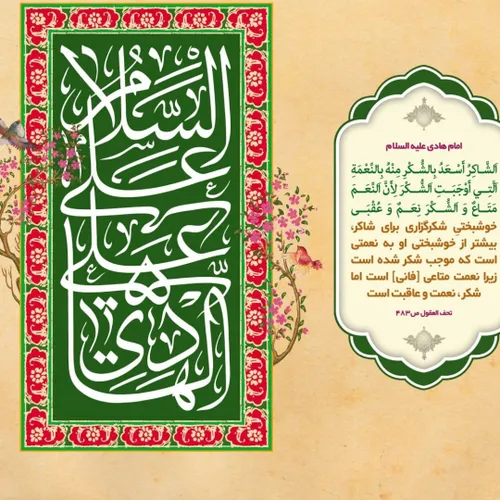 السلام علی
علی
الهادی
امام هادی علیه السلام
اَلشّاکِرُ أَسْعَدُ بِالشُّکْرِ مِنْهُ بِالنِّعْمَةِ
الَّتي أَوْجَبَتِ الشُّکْرَ لِأَنَّ النِّعَمَ
مَتاعٌ وَ الشُّکْرَ نِعَمٌ وَ عُقْبَی
خوشبختیِ شکرگزاری برای شاکر،
بیشتر از خوشبختی او به نعمتی
است که موجب شکر شده است
زیرا نعمت متاعی [فانی] است اما
شکر، نعمت و عاقبت است
تحف العقول ص۴۸۳